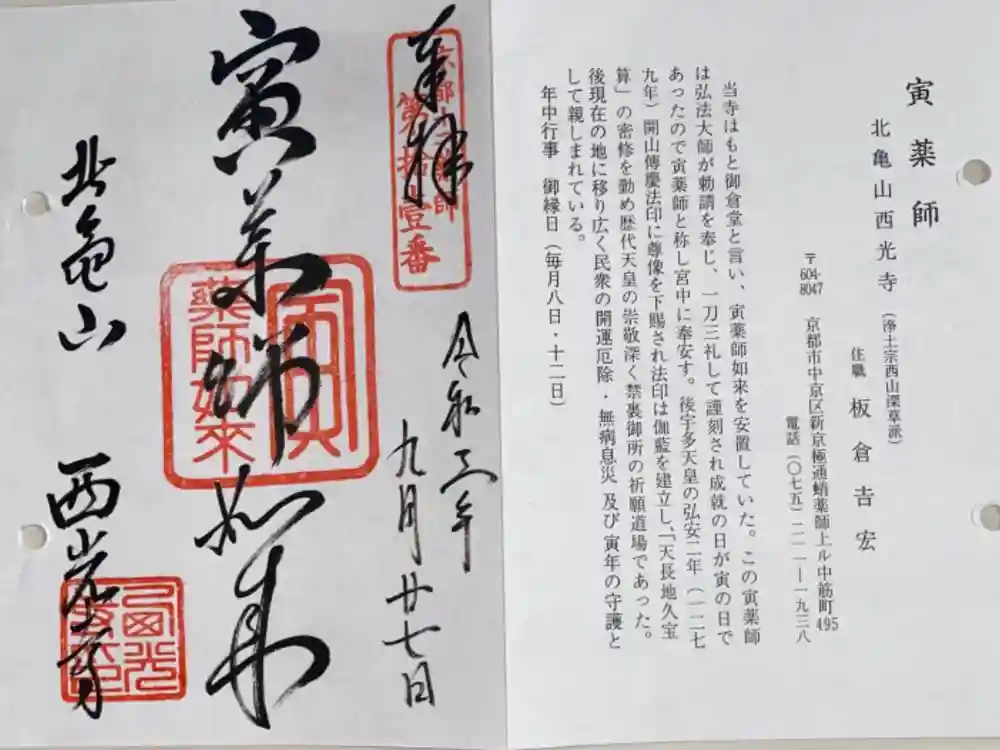 寅薬師
北亀山西光寺（浄土宗西山深草派）
住職 板倉吉宏
〒604-8047 京都市中京区新京極通蛸薬師上ル中筋町495
電話（〇七五）二二一ー一九三八
当寺はもと御倉堂と言い、寅薬師如来を安置していた。この寅薬師
は弘法大師が勅請を奉じ、一刀三礼して謹刻され成就の日が寅の日で
あったので寅薬師と称し宮中に奉安す。後宇多天皇の弘安二年（一二七
九年）開山傳慶法印に尊像を下賜され法印は伽藍を建立し、「天長地久宝
算」の密修を勤め歴代天皇の崇敬深く禁裏御所の祈願道場であった。
後現在の地に移り広く民衆の開運厄除・無病息災 及び寅年の守護と
して親しまれている。
年中行事 御縁日（毎月八日・十二日）
奉拝
第拾壹番
九月廿七日
寅薬師如来
薬師如来
北亀山
西光寺